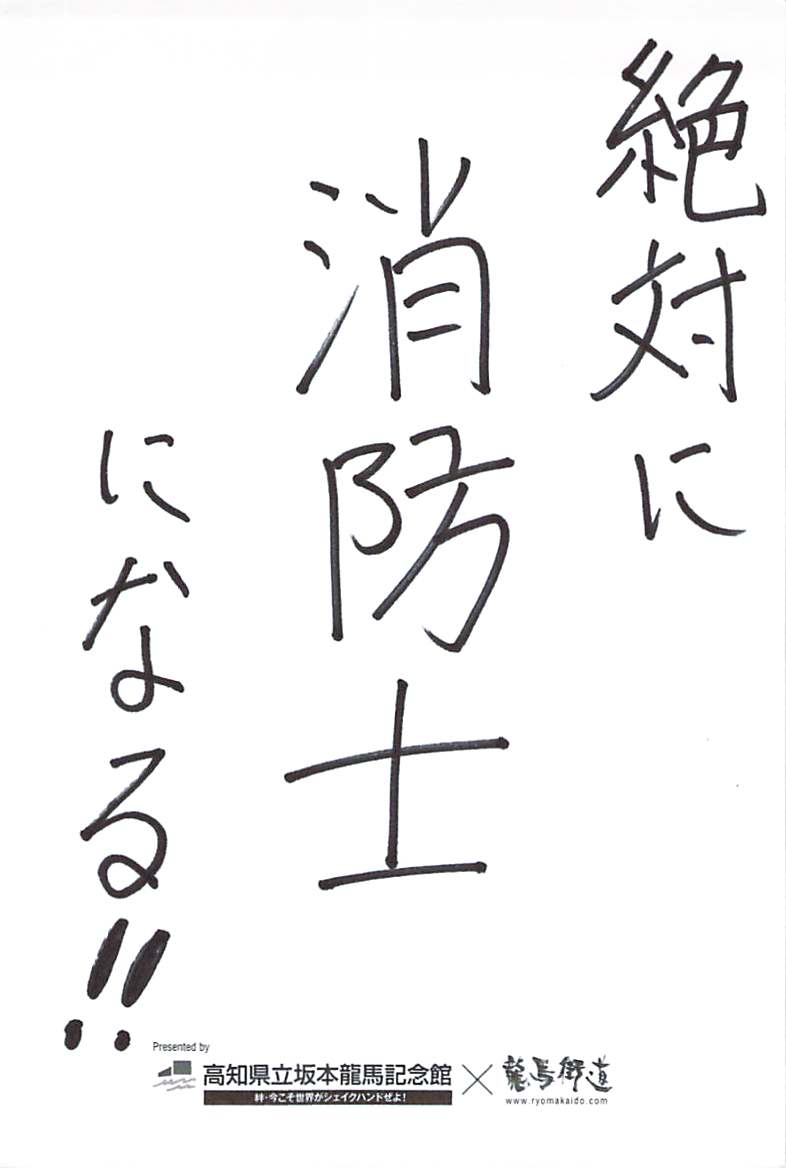 絶対に
消防士
になる!!
Presented by
高知県立坂本龍馬記念館×龍馬街道
絆・今こそ世界がシェイクハンドぜよ!
www.ryomakaido.com